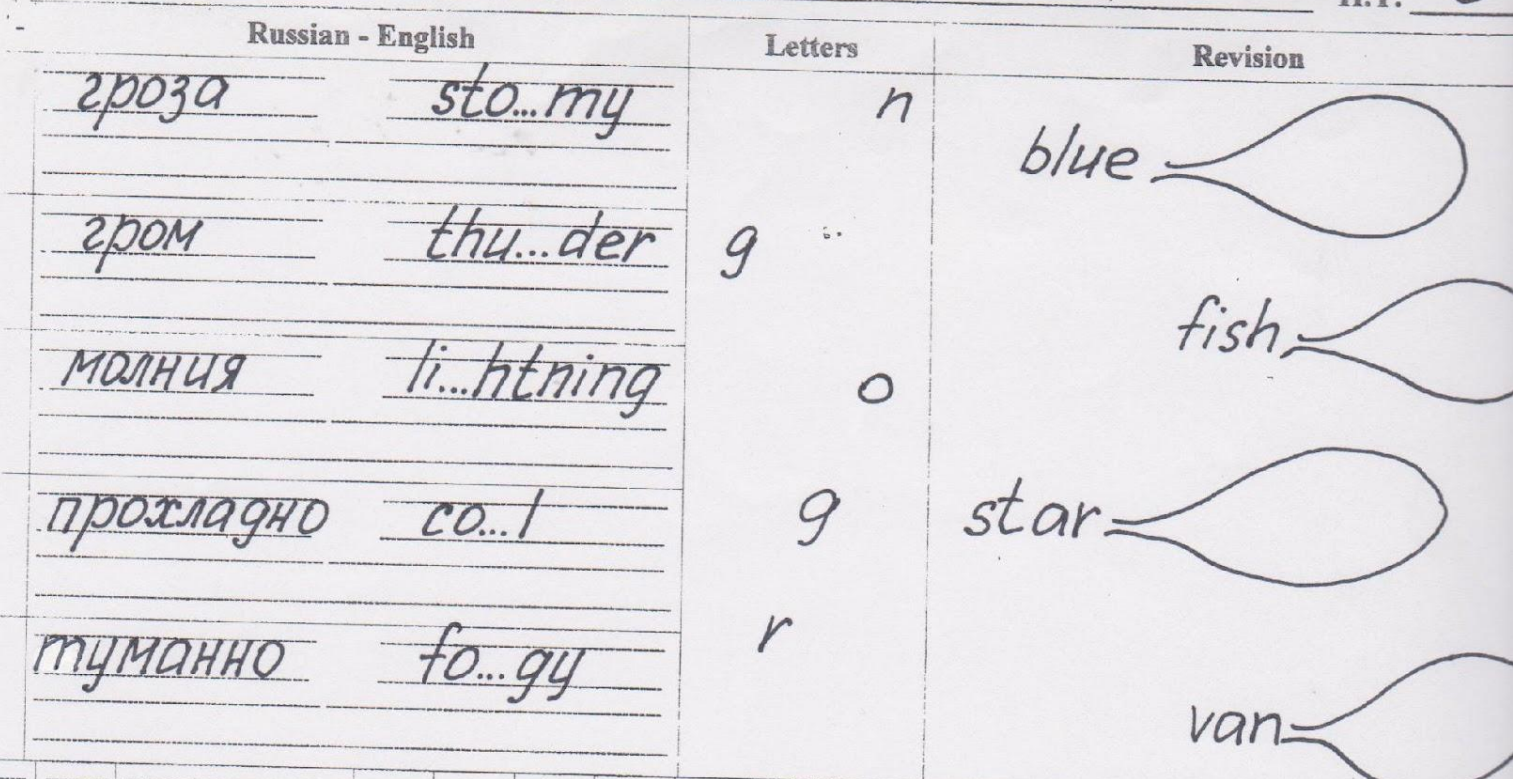 Russian - English Letters Revision
гроза sto...my n blue
гром thu...der g
fish
молния li...htning o
прохладно co...l g star
туманно fo...gy r
van